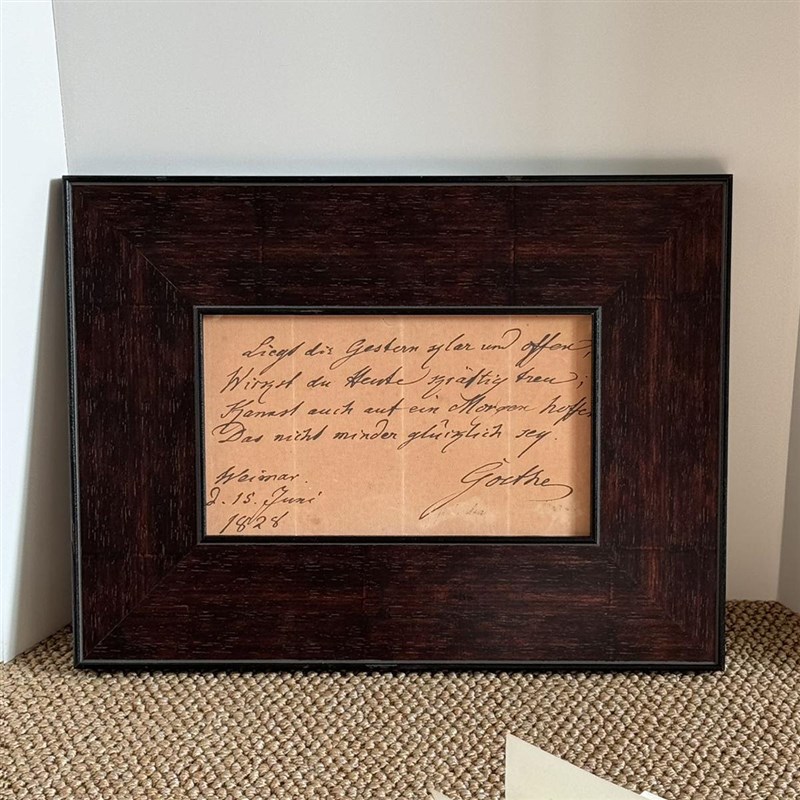 Liegt dir Gestern klar und offen,
Wirkst du Heute kräftig treu;
Kannst auch auf ein Morgen hoffen
Das nicht minder glücklich sey.
Weimar.
d. 15. Juni
1828
Goethe